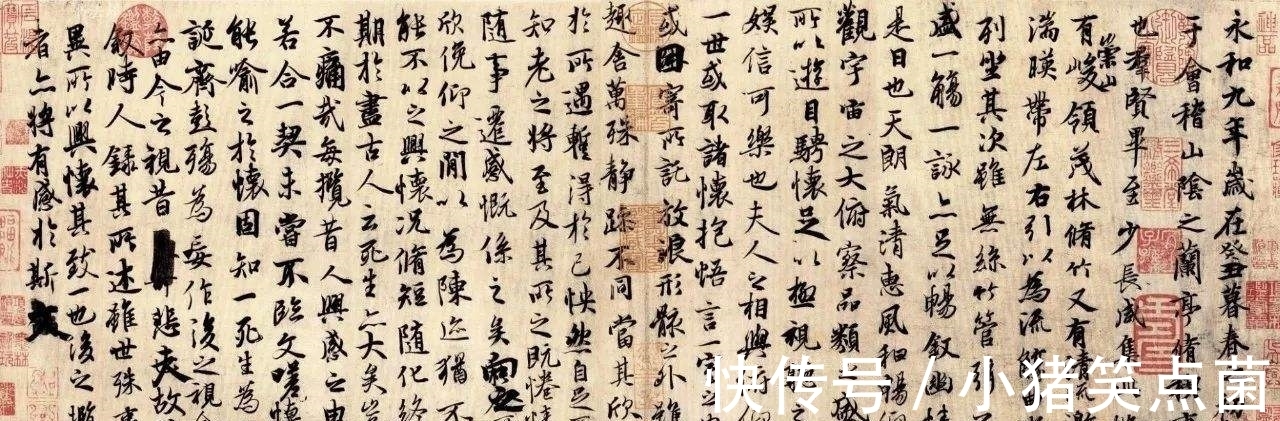 永和九年歲在癸丑暮春
于會稽山陰之蘭亭脩
也羣賢畢至少長咸集
有崇山峻領茂林脩竹又有清流
湍暎帶左右引以為流
列坐其次雖無絲竹管弦
盛一觴一詠亦足以暢敘幽情
是日也天朗氣清惠風和暢仰
觀宇宙之大俯察品類之盛
所以遊目騁懷足以極視聽之
娛信可樂也夫人之相與俯仰
一世或取諸懷抱悟言一室之
或因寄所託放浪形骸之外雖
趣舍萬殊静躁不同當其欣
於所遇蹔得於己怏然自足
知老之將至及其所之既惓情
隨事遷感慨係之矣向之
欣俛仰之閒以為陳迹猶不
能不以之興懷況脩短隨化終
期於盡古人云死生亦大矣豈
不痛哉每攬昔人興感之由
若合一契未嘗不臨文嗟悼
能喻之於懷固知一死生為
誕齊彭殤為妄作後之視今
亦由今之視昔悲夫故
敘時人錄其所述雖世殊事
異所以興懷其致一也後之攬
者亦將有感於斯文
快传号/小猪笑点菌